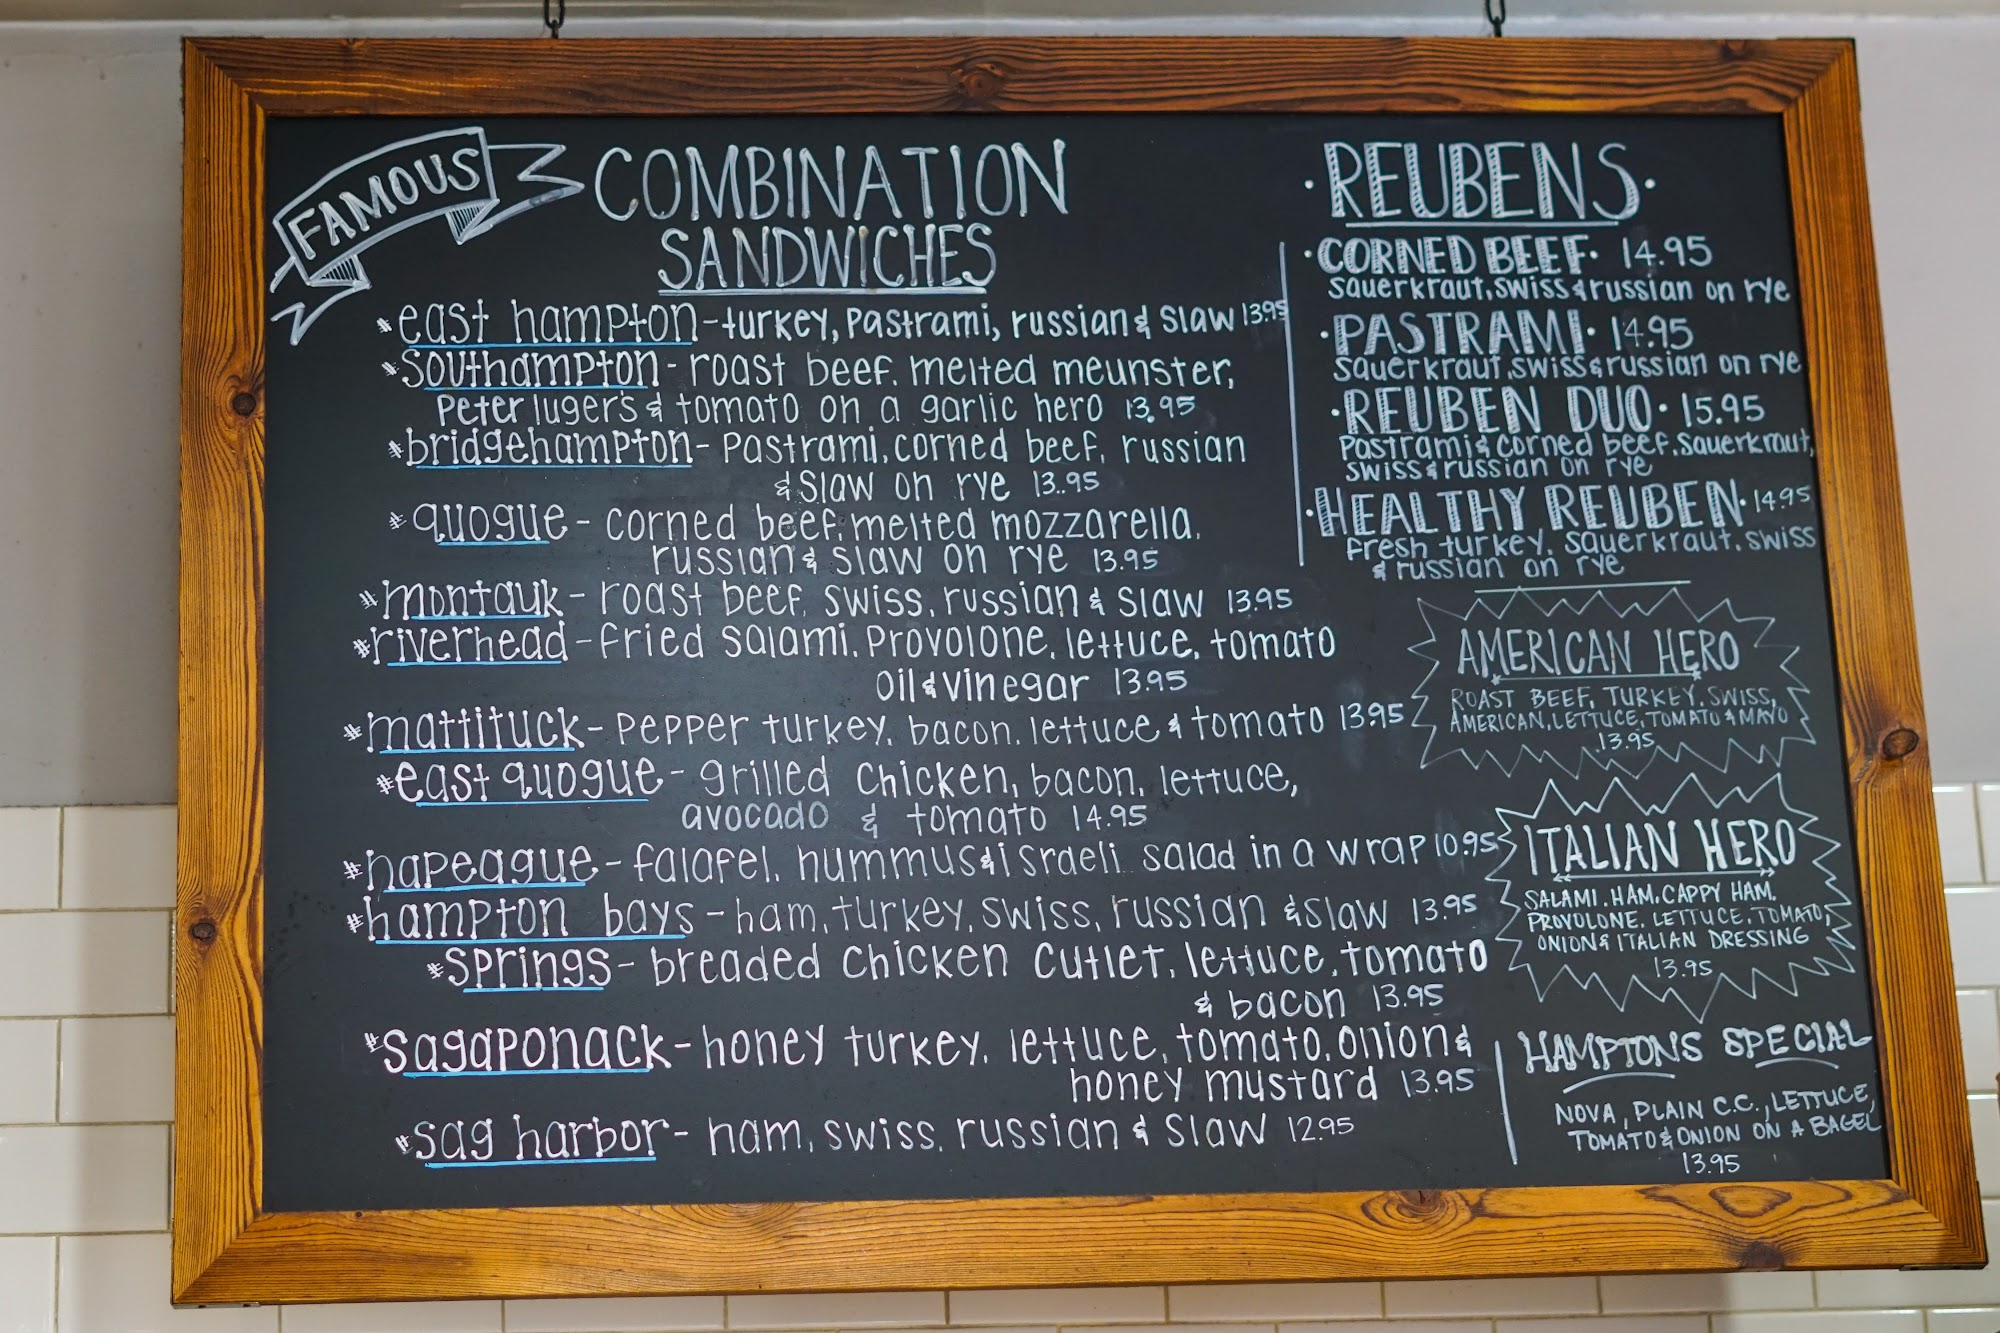 FAMOUS
COMBINATION
SANDWICHES
*east hampton-turkey, pastrami, russian & slaw 13.95
*southampton-roast beef, melted meunster,
peter luger's & tomato on a garlic hero 13.95
*bridgehampton-pastrami, corned beef, russian
& slaw on rye 13.95
*quogue-corned beef, melted mozzarella,
russian & slaw on rye 13.95
*montauk-roast beef, swiss, russian & slaw 13.95
*riverhead-fried salami, provolone, lettuce, tomato
oil & vinegar 13.95
*mattituck-pepper turkey, bacon, lettuce & tomato 13.95
*east quogue-grilled chicken, bacon, lettuce,
avocado & tomato 14.95
*napeague-falafel, hummus & israeli salad in a wrap 10.95
*hampton bays-ham, turkey, swiss, russian & slaw 13.95
*springs-breaded chicken cutlet, lettuce, tomato
& bacon 13.95
*sagaponack-honey turkey, lettuce, tomato, onion &
honey mustard 13.95
*sag harbor-ham, swiss, russian & slaw 12.95
·REUBENS·
·CORNED BEEF· 14.95
sauerkraut, swiss & russian on rye
·PASTRAMI· 14.95
sauerkraut, swiss & russian on rye
·REUBEN DUO· 15.95
pastrami & corned beef, sauerkraut,
swiss & russian on rye
·HEALTHY REUBEN· 14.95
fresh turkey, sauerkraut, swiss
& russian on rye
AMERICAN HERO
ROAST BEEF, TURKEY, SWISS,
AMERICAN, LETTUCE, TOMATO & MAYO
13.95
ITALIAN HERO
SALAMI, HAM, CAPPY HAM,
PROVOLONE, LETTUCE, TOMATO,
ONION & ITALIAN DRESSING
13.95
HAMPTONS SPECIAL
NOVA, PLAIN C.C., LETTUCE,
TOMATO & ONION ON A BAGEL
13.95